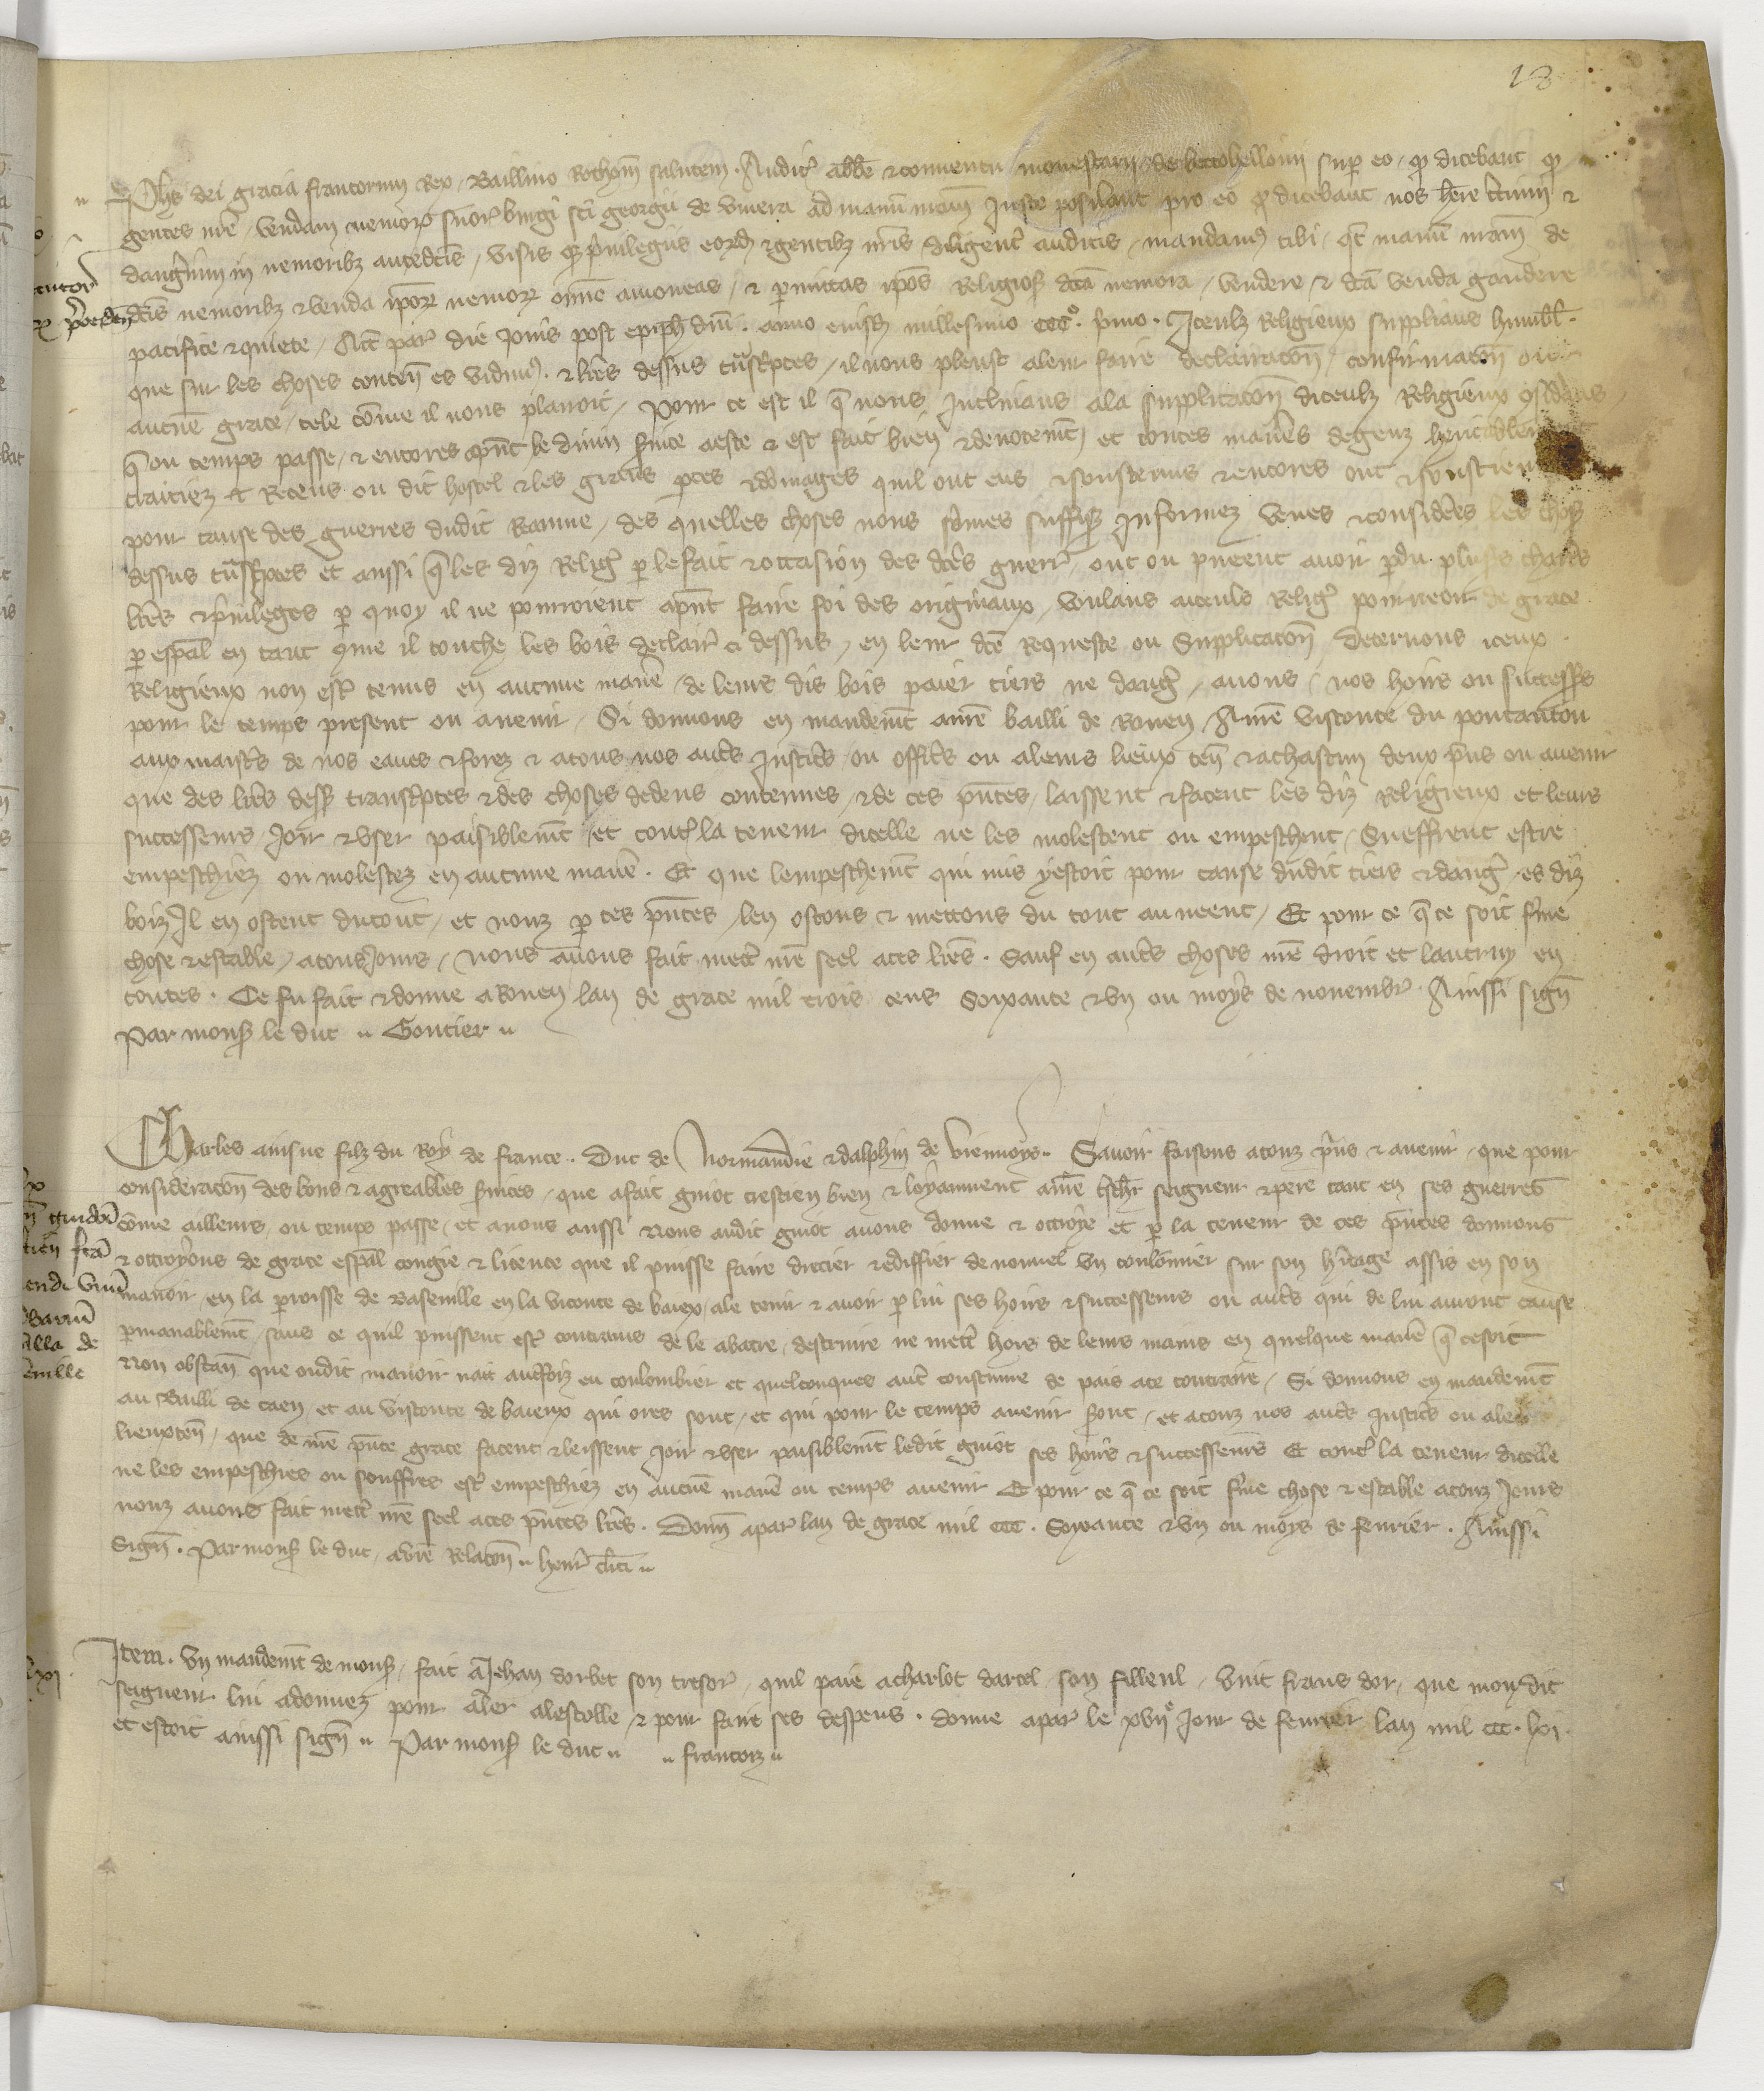 18
Phs dei gracia francorum Rex, Baillivo Rothom salutem. Auditis abbate et conventu monasterii de beccohellouin super eo, quod dicebant quod
gentes nre, vendam nemorum suorum burgi sci georgii de vivera ad manum nram Iuste posuerant pro eo quod dicebant nos here tercium et
dangerium in nemoribz antedictis, visis que privilegiis eordem et gentibz nris diligenter auditis, mandamus tibi, qt manum nram de
dictis nemoribz et venda ipsorum nemorum omne amoveas, et permittas ipsos Religiosos dcta nemora, vendere et dcta venda gaudere
pacifice et quiete, Actum par die Jovis post epiph dni. anno eiusdem millesimo cccº. primo. Iceulz Religieux supplians humbl.
que sur les choses contenues es vidimus. et lres dessus transcriptes, il nous pleust a leur faire declairacion, confirmacion ou
aucune grace, tele comme il nous plairoit, Pour ce est il que nous Inclinans a la supplicacion diceulz Religieux considerans,
que ou temps passe, et encores a present le divin service a este et est fait bien et devotement, et toutes manieres de genz
traitiez et Receus ou dit hostel et les griefs pertes et dommages quil ont eus et soustenus et encores ont et soustiennent
pour cause des guerres dudit Reaume, des quelles choses nous sommes suffisamment Informez veues et considerees les choses
dessus transcriptes et aussi que les diz Religieux par le fait et occasion des dictes guerres, ont ou pueent avoir perdu plusieurs chartres
lres et privileges par quoy il ne pourroient a present faire foi des originaux, voulans a iceuls Religieux pourveoir de grace
par especial en tant que il touche les bois declairiez ci dessus, en leur dcte Requeste ou Supplicacion, Decernons iceux
Religieux non estre tenus en aucune maniere, de leurs dis bois paier tiers ne danger, a nous, nos hoirs ou successeurs
pour le temps present ou avenir, Si donnons en mandement au bailli de Rouen, Au visconte du pontautou
aux maistres de nos eaues et forez et a tous nos autres Justiciers ou officiers ou a leurs lieux ten et a chascun deux presens ou avenir
que des lres dessus transcriptes et des choses dedens contenues, et de ces presentes, laissent et facent les diz Religieux et leurs
successeurs Joir et user paisiblement et contre la teneur dicelle ne les molestent ou empeschent, Sueffrent estre
empeschiez ou molestez en aucune maniere. Et que lempeschement qui mis y estoit pour cause dudit tiers et danger es diz
boiz Il en ostent du tout, et nouz par ces presentes, len ostons et mettons du tout au neent, Et pour ce que ce soit ferme
chose et estable, a tous Jours, Nous avons fait mettre nre seel a ces lres. Sauf en autres choses nre droit et lautruy en
toutes. Ce fu fait et donne a Rouen lan de grace mil trois cens Soixante et un ou moys de novembre. Ainssi signe
Par monseigneur le duc .. Gontier ..

Charles ainsne filz du Roy de france. Duc de Normandie et dalphin de viennoys. Savoir faisons a touz presens et avenir, que pour
consideracion des bons et agreables services, que a fait guiot crestien bien et loyaument a nre treschier seigneur et pere tant en ses guerres
comme ailleurs, ou temps passe, et a nous aussi Nous audit guiot avons donne et ottroye et par la teneur de ces presentes donnons
et ottroyons de grace especial congie et licence que il puisse faire drecier et ediffier de nouvel un coulombier sur son heritage assis en son
manoir, en la parroisse de Baseville en la viconte de baiex, a le tenir et avoir par lui ses hoirs et successeurs ou autres qui de lui auront cause
permanablement, sans ce quil puissent estre contrains de le abatre, destruire ne mettre hors de leurs mains en quelque maniere que ce soit
Non obstant que oudit manoir nait autrefoiz eu coulombier et quelconques autre coustume de pais a ce contraire, Si donnons en mandement
au Bailli de caen, et au visconte de baieux qui ores sont, et qui pour le temps avenir seront, et a touz nos autres Justiciers ou a leurs
lieuxten, que de nre presente grace facent et leissent Joir et user paisiblement ledit guiot ses hoirs et successeurs Et contre la teneur dicelle
ne les empeschies ou souffres estre empeschiez en aucune maniere ou temps avenir Et pour ce que ce soit ferme chose et estable a touz Jours
nouz avons fait mettre nre seel a ces presentes lres. Donne a par lan de grace mil ccc. Soixante et un ou moys de fevrier. Ainssi
Signe. Par monseigneur le duc, a vre Relacion ..

Item. Un mandement de monseigneur, fait a Jehan dorbet son tresorier, quil paie a charlot darcel son filleul, vint frans dor, que mondit
seigneur lui a donnez pour aler a lescolle, et pour faire ses despens. Donne a par le xviiº Jour de fevrier lan mil ccc. lxi.
et estoit ainssi signe .. Par monseigneur le duc .. .. francorz ..